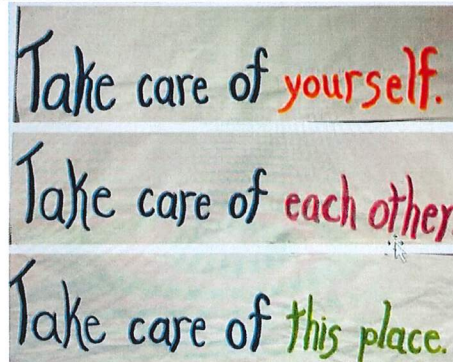 Take care of yourself.
Take care of each other.
Take care of this place.